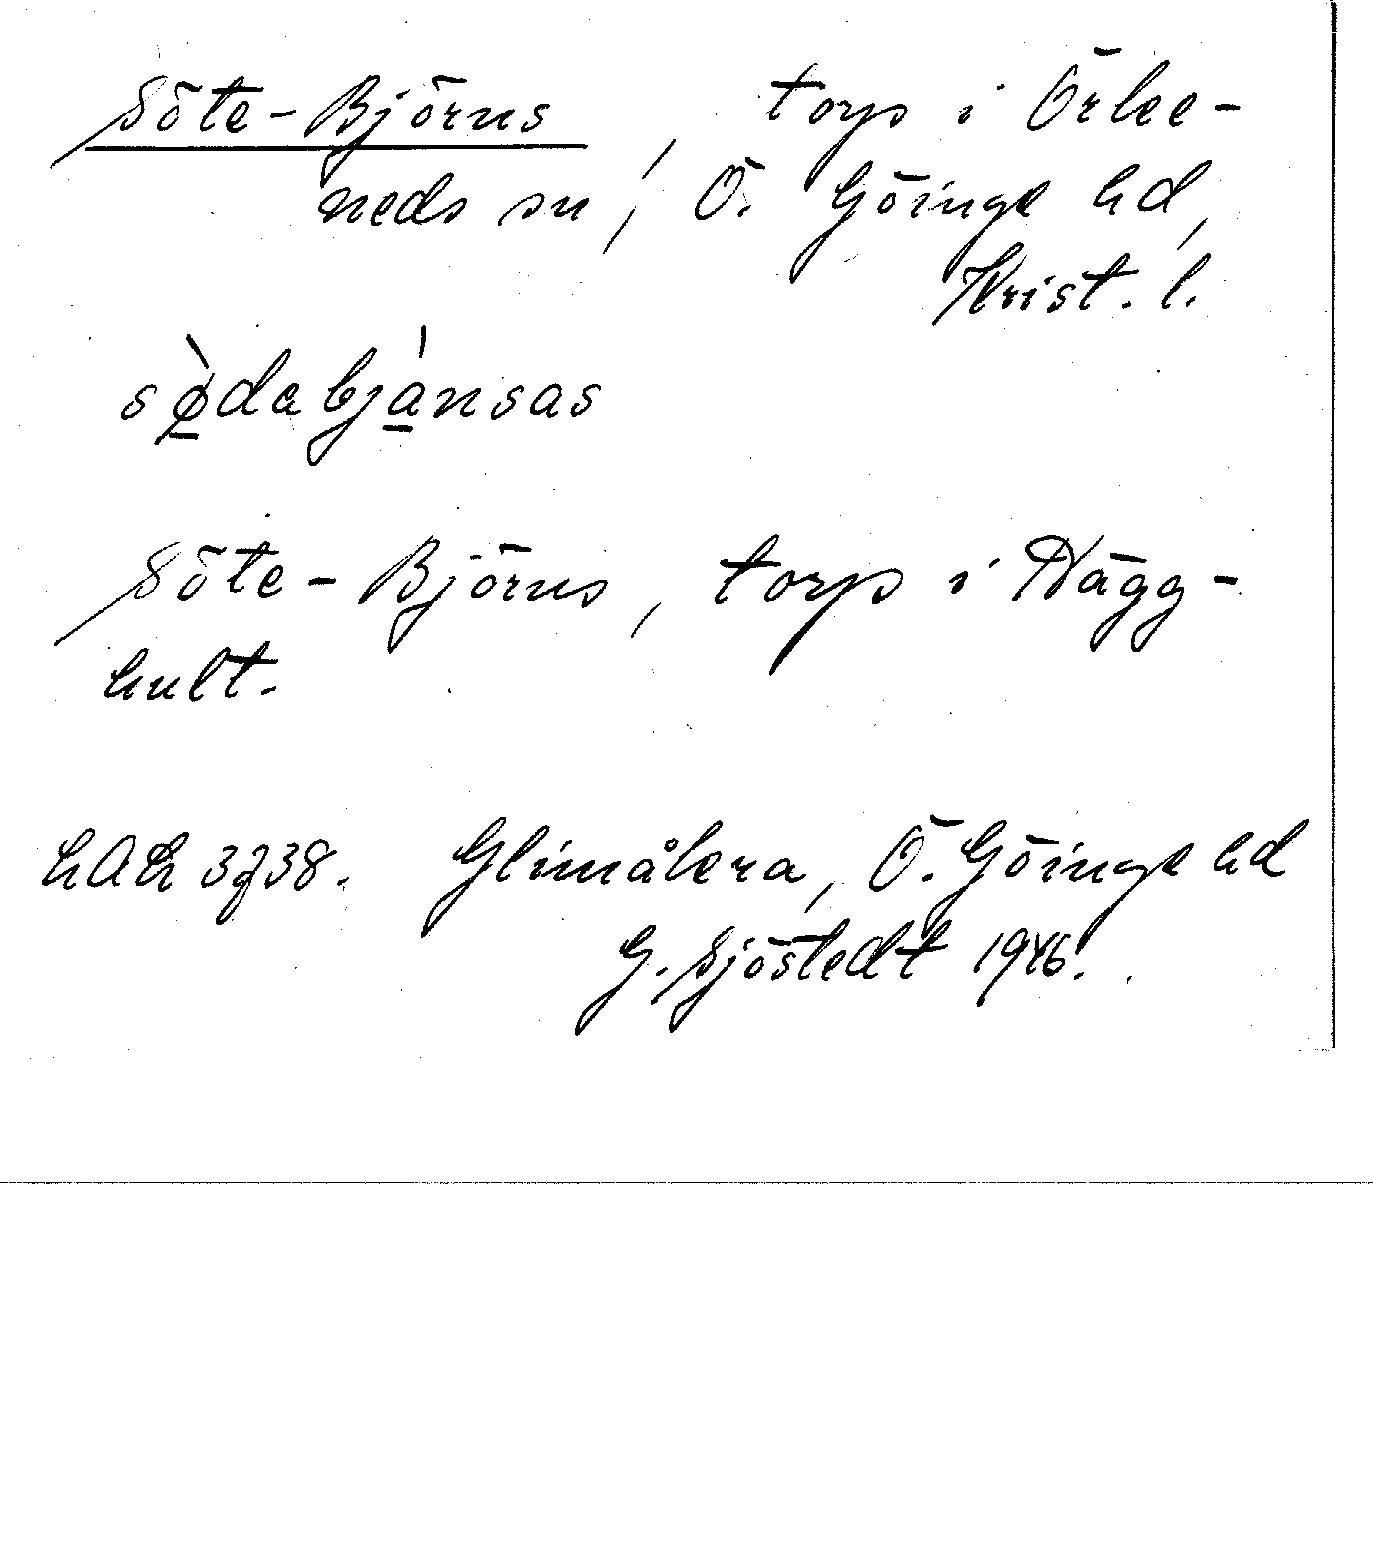 Söte-Björns, torp i Örke-
neds sn, Ö. Göinge hd,
Krist. l.
sø̀dabjànsas
Söte-Björns, torp i Hägg-
hult.
LAL 3738. Glimåkra, Ö. Göinge hd
G. Sjöstedt 1946.